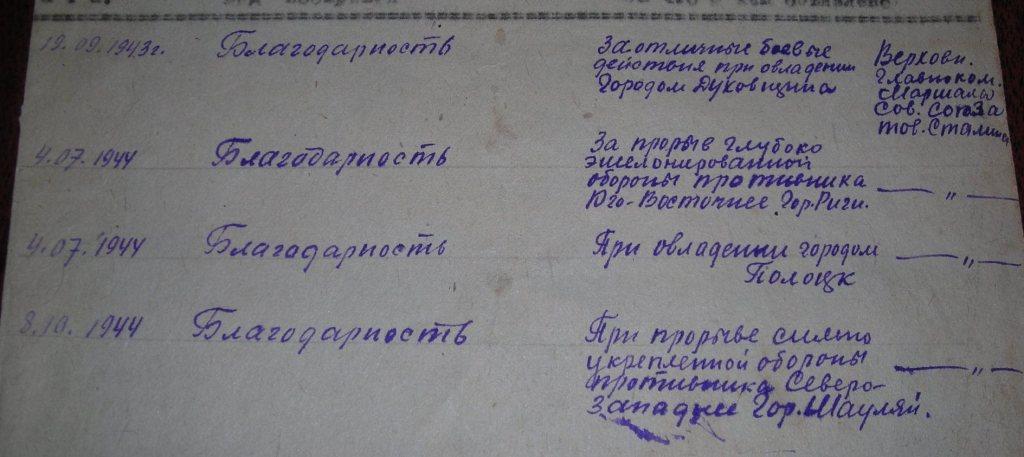 19.09.1943г. Благодарность За отличные боевые
действия при овладении
Городом Духовщина
Верховн.
Главноком.
Маршала
Сов. Союза
тов. Сталина
4.07.1944 Благодарность За прорыв глубоко
эшелонированной
обороны противника — " —
Юго-Восточнее Гор. Риги.
4.07.1944 Благодарность При овладении городом — " —
Полоцк
8.10.1944 Благодарность При прорыве сильно
укрепленной обороны — " —
противника Северо-
Западнее Гор. Шауляй.